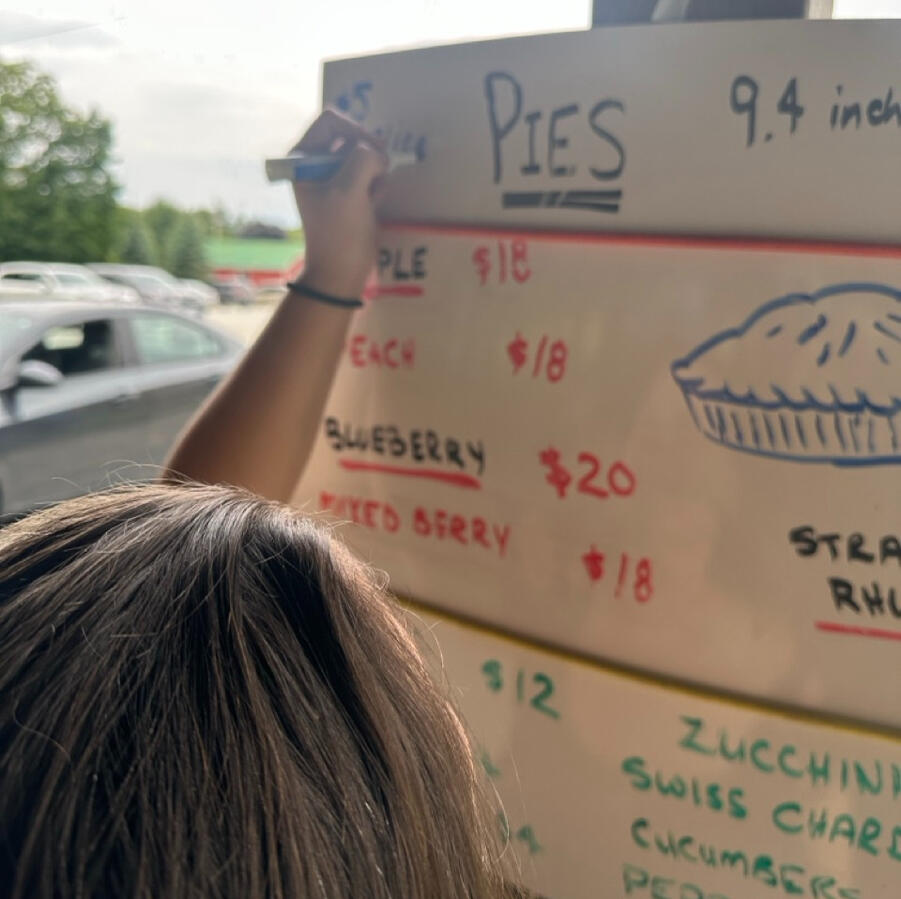 $5
PIES
9.4 inch
PLE $18
EACH $18
BLUEBERRY $20
MIXED BERRY $18
STRA
RHU
$12
ZUCCHINI
SWISS CHARD
CUCUMBERS
PEPP